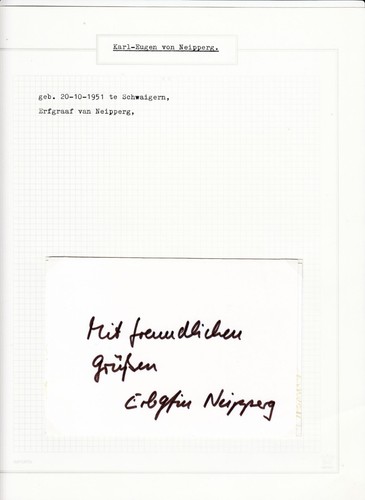 Karl-Eugen von Neipperg.
geb. 20-10-1951 te Schwaigern,
Erfgraaf van Neipperg,
Mit freundlichen
Grüßen
Erbgfin Neipperg